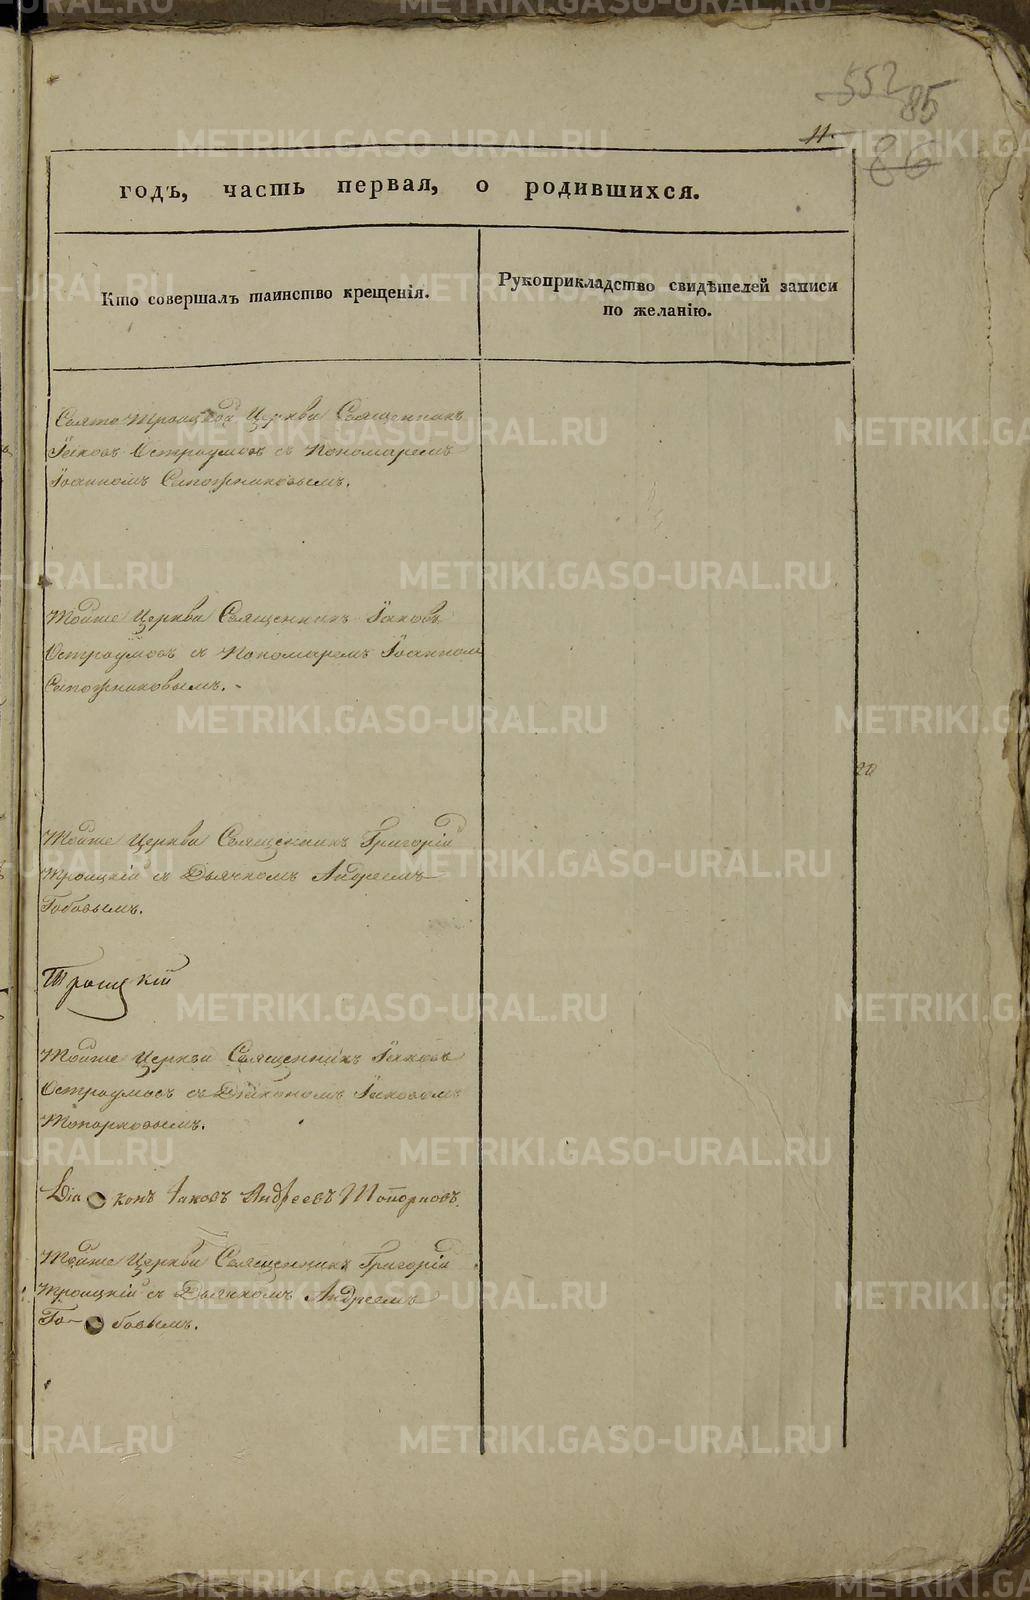 552
85
11.
86
годъ, часть первая, о родившихся.
Кто совершалъ таинство крещенія.
Рукоприкладство свидѣтелей записи
по желанію.
Свято Троицкой Церкви Священникъ
Іаковъ Остроумовъ съ Пономаремъ
Іоанномъ Сапожниковымъ.
Тойже Церкви Священникъ Іаковъ
Остроумовъ съ Пономаремъ Іоанномъ
Сапожниковымъ.
Тойже Церкви Священникъ Григорій
Троицкій съ Дьячкомъ Андреемъ
Бобовымъ.
Троицкій
Тойже Церкви Священникъ Іаковъ
Остроумовъ съ Діакономъ Іаковомъ
Топорковымъ.
Діаконъ Іаковъ Андреевъ Топорковъ.
Тойже Церкви Священникъ Григорій
Троицкій съ Дьячкомъ Андреемъ
METRIKI.GASO-URAL.RU